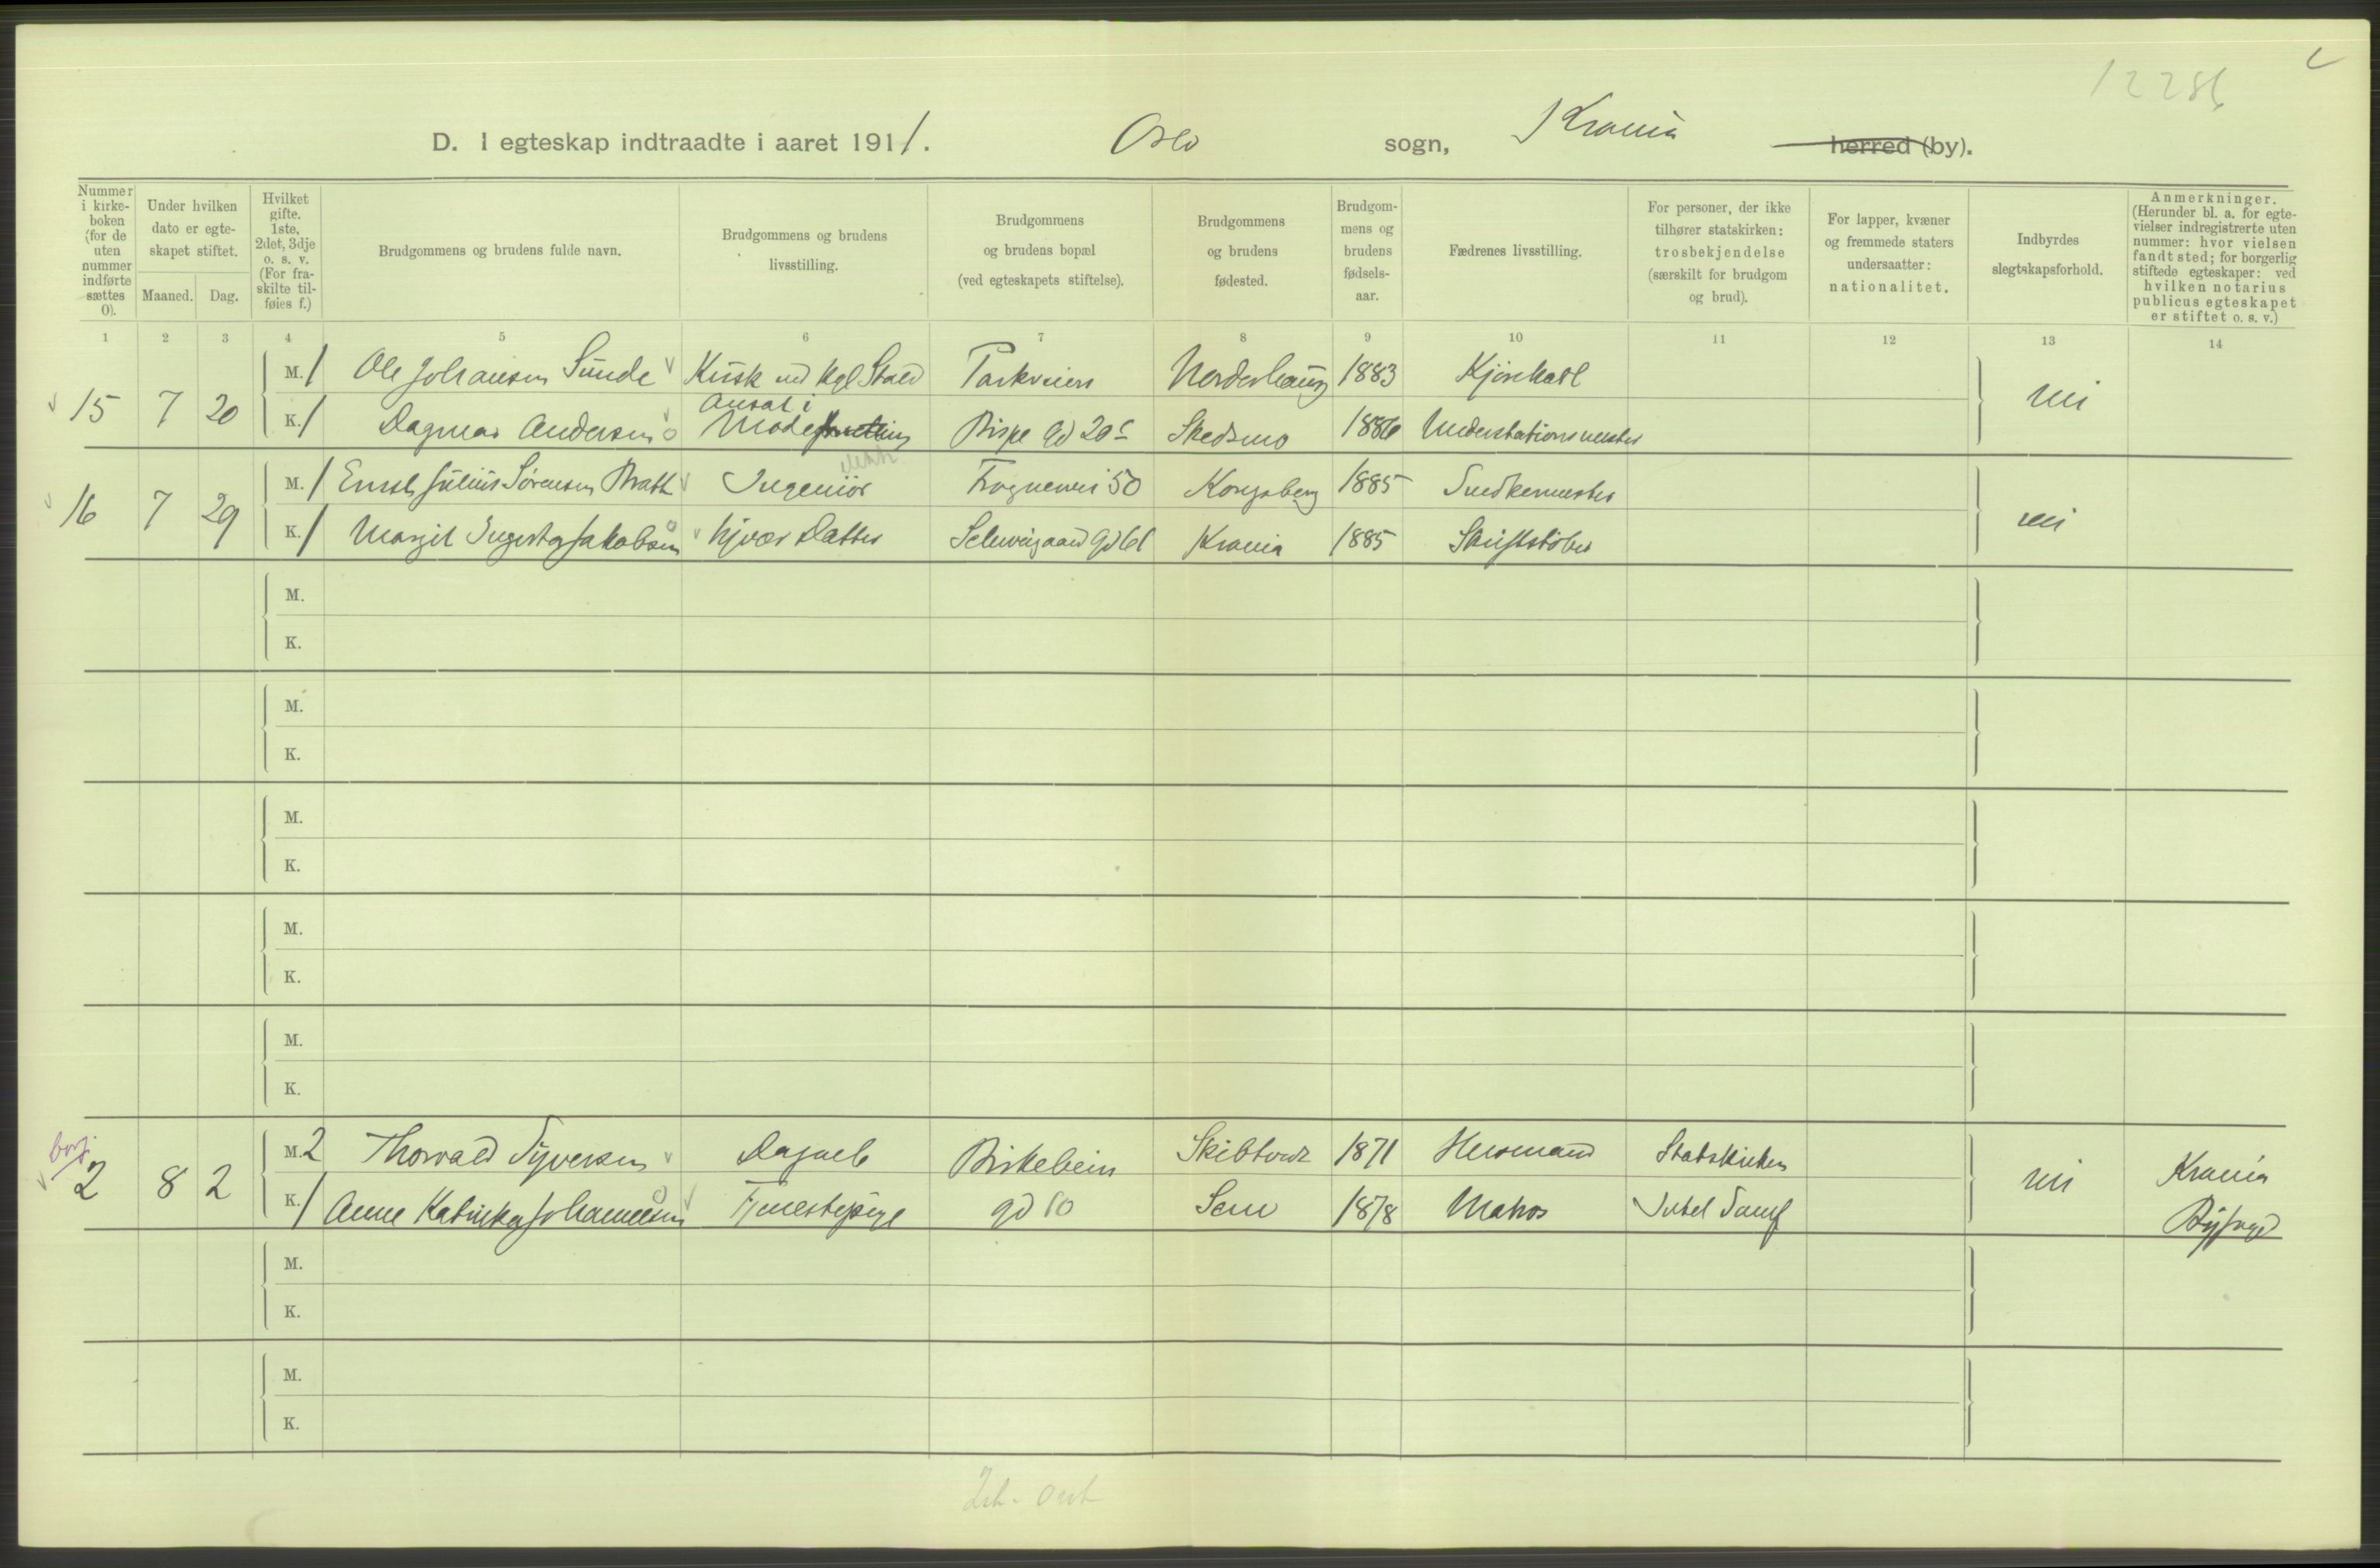 12286
D. I egteskap indtraadte i aaret 1911. Oslo sogn, Krania herred (by).
Nummer i kirkeboken (for de uten nummer indførte sættes 0).
Under hvilken dato er egteskapet stiftet.
Maaned. Dag.
Hvilket gifte. 1ste, 2det, 3dje o. s. v. (For fraskilte tilføies f.)
Brudgommens og brudens fulde navn.
Brudgommens og brudens livsstilling.
Brudgommens og brudens bopæl (ved egteskapets stiftelse).
Brudgommens og brudens fødested.
Brudgommens og brudens fødselsaar.
Fædrenes livsstilling.
For personer, der ikke tilhører statskirken: trosbekjendelse (særskilt for brudgom og brud).
For lapper, kvæner og fremmede staters undersaatter: nationalitet.
Indbyrdes slegtskapsforhold.
Anmerkninger. (Herunder bl. a. for egtevielser indregistrerte uten nummer: hvor vielsen fandt sted; for borgerlig stiftede egteskaper: ved hvilken notarius publicus egteskapet er stiftet o. s. v.)
1 2 3 4 5 6 7 8 9 10 11 12 13 14
15 7 20 M. 1 Ole Johansen Sunde Kusk ved Kgl Stald Parkveien Norderhaug 1883 Kjørekarl nei
K. 1 Dagmar Andersen Ansat i Mode Bispe Gd 20c Skedsmo 1886 Understationsmester
16 7 29 M. 1 Ernst Julius Sørensen Brath Ingeniør elektr Frognervei 50 Kongsberg 1885 Snedkermester nei
K. 1 Margit Ingerta Jakobsen hjvær Datter Schweigaard Gd 61 Krania 1885 Skriftstøber
M.
K.
M.
K.
M.
K.
M.
K.
M.
K.
borg.
2 8 2 M. 2 Thorvald Syversen Dagarb Birkebein Skibtvedt 1871 Husmand Statskirken nei Krania
K. 1 Anne Katinka Johannesen Tjenestepige gd 10 Sem 1878 Matros Byfoged
M.
K.
M.
K.